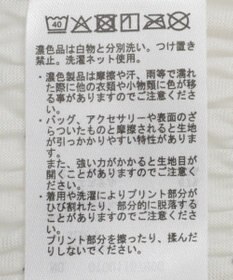 40
濃色品は白物と分別洗い。つけ置き
禁止。洗濯ネット使用。
・濃色製品は摩擦や汗、雨等で濡れ
た際に他の衣類や小物類に色が移
る事がありますのでご注意くださ
い。
・バッグ、アクセサリーや表面のざ
らついたものと摩擦されると生地
が引っかかりやすい特性がありま
す。
また、強い力がかかると生地目が
開くことがありますのでご注意く
ださい。
・着用や洗濯によりプリント部分が
ひび割れたり、部分的に脱落する
ことがありますのでご注意くださ
い。
プリント部分を擦ったり、揉んだ
りしないでください。